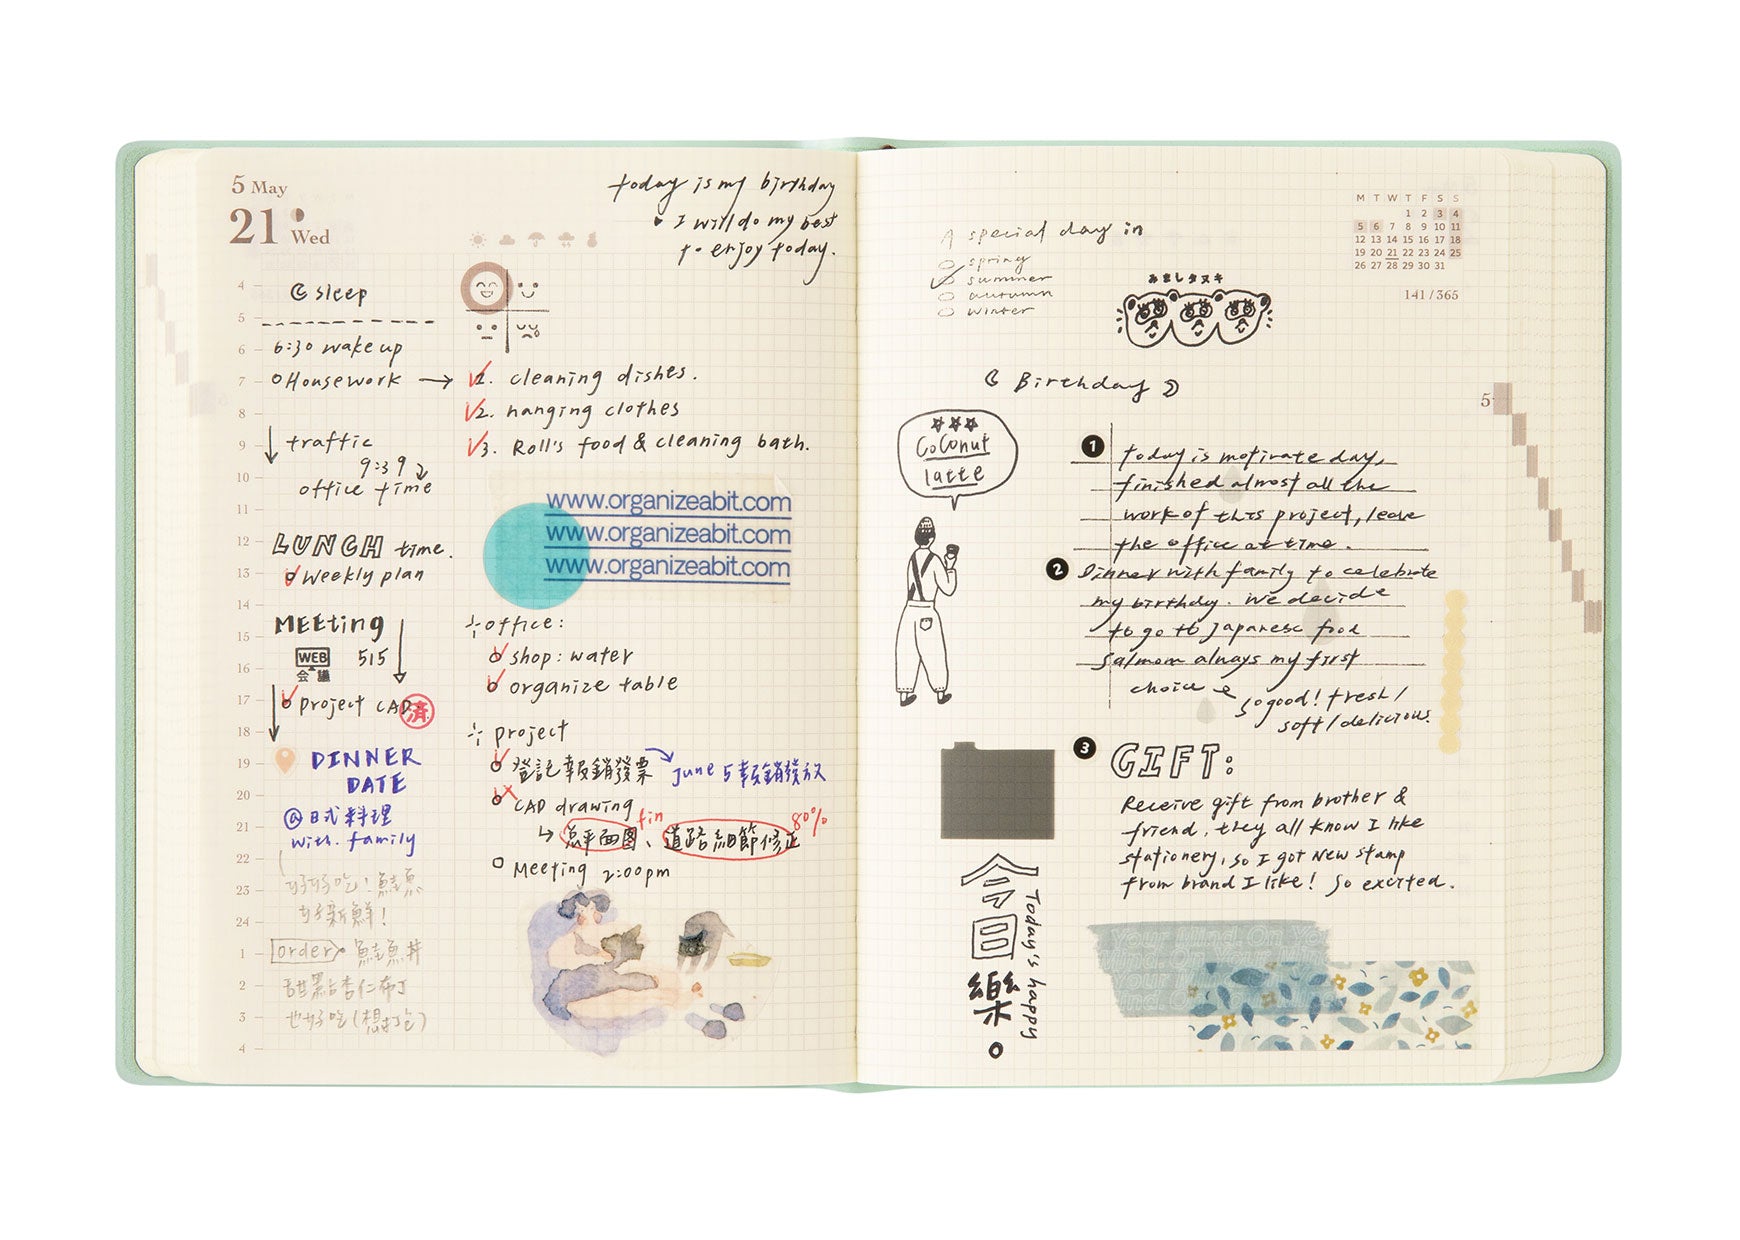 5 May
21 Wed
today is my birthday
I will do my best
to enjoy today.
4
5
6
7
8
9
10
11
12
13
14
15
16
17
18
19
20
21
22
23
24
1
2
3
4
sleep
6:30 wake up
Housework →
traffic
9:39
office time
LUNCH time.
weekly plan
MEETING
WEB 515
会議
project CAD 済
DINNER
DATE
@日式料理
with. family
好好吃！鮭魚
好新鮮！
order 鮭魚丼
甜點杏仁布丁
也好吃(想打包)
1. cleaning dishes.
2. hanging clothes
3. Roll's food & cleaning bath.
www.organizeabit.com
www.organizeabit.com
www.organizeabit.com
office:
shop: water
organize table
project
登記報銷發票 June 5 報銷發放
CAD drawing
fin 80%
總平面图、道路細節修正
Meeting 2:00pm
A special day in
spring
summer
autumn
winter
みましタヌキ
M T W T F S S
1 2 3 4
5 6 7 8 9 10 11
12 13 14 15 16 17 18
19 20 21 22 23 24 25
26 27 28 29 30 31
141/365
5
Birthday
Coconut
latte
1
today is motivate day,
finished almost all the
work of this project, leave
the office at time.
2
Dinner with family to celebrate
my birthdy. We decide
to go to Japanese food
salmom always my first
choice so good! fresh/
soft/delicious.
3 GIFT:
Receive gift from brother &
friend, they all know I like
stationery, so I got new stamp
from brand I like! So excited.
今日樂。
Today's happy
Your Mind On Yo